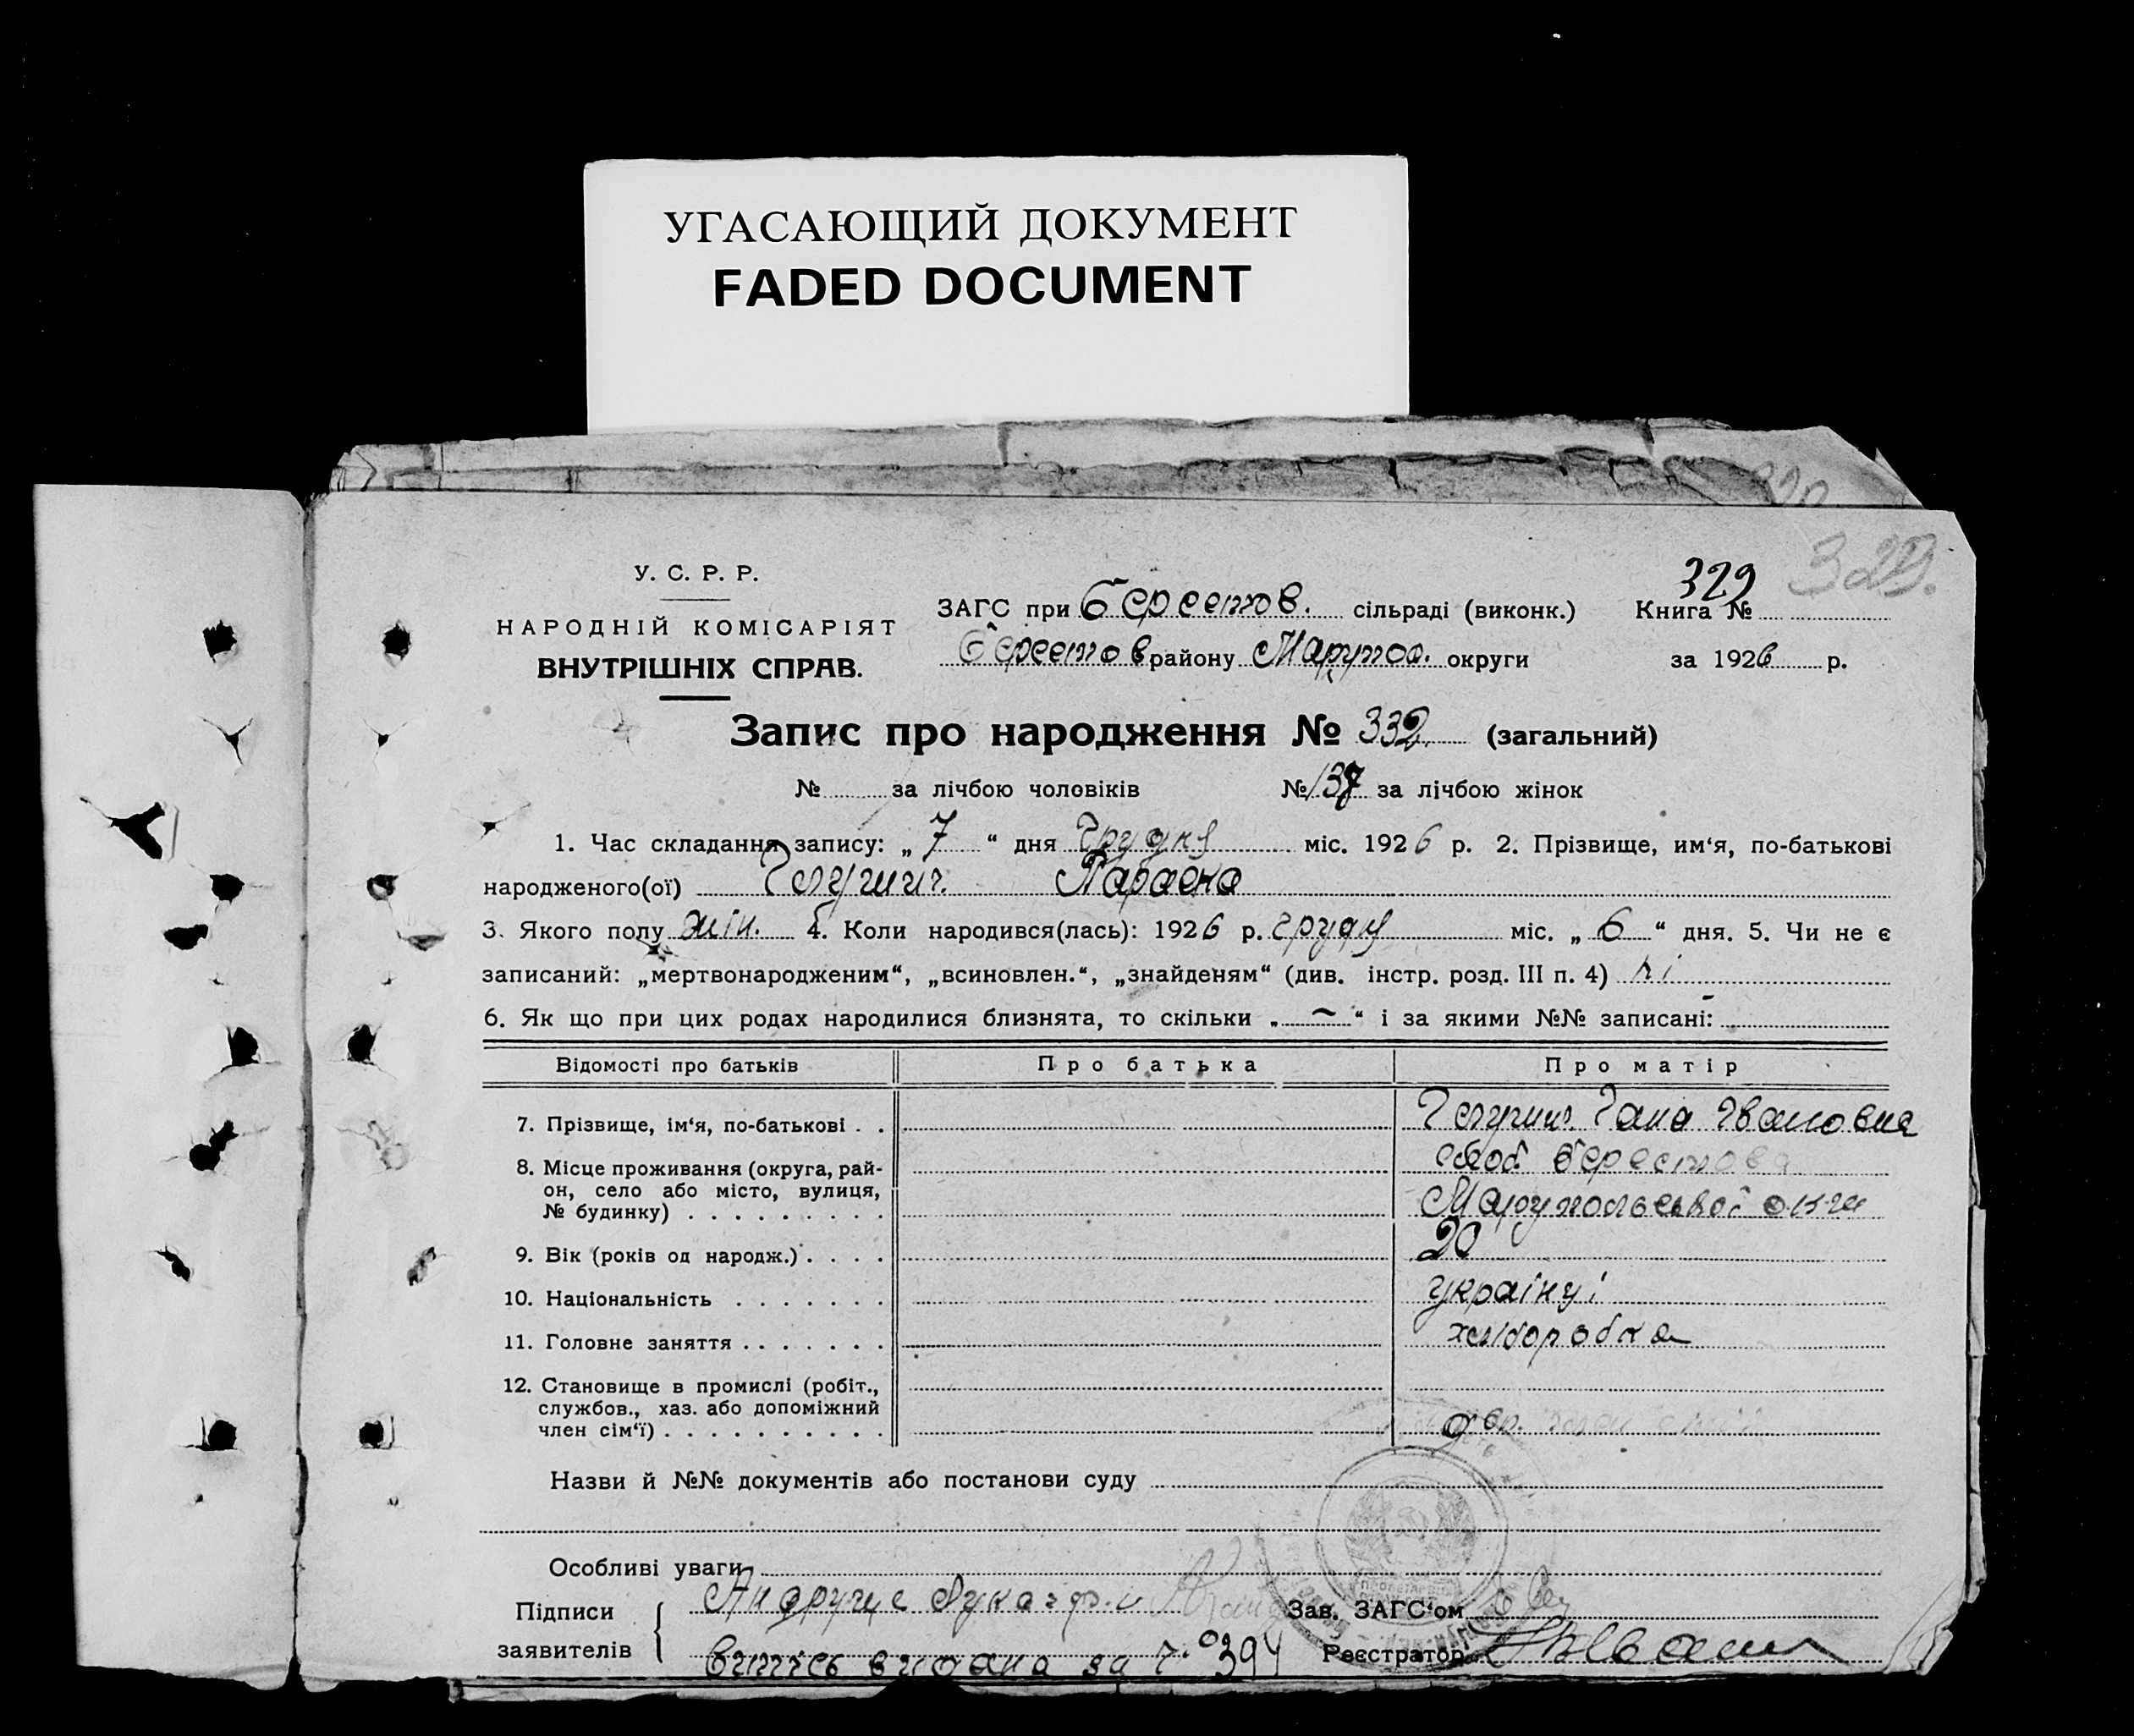 УГАСАЮЩИЙ ДОКУМЕНТ
FADED DOCUMENT
329.
У. С. Р. Р.
НАРОДНІЙ КОМІСАРІЯТ
ВНУТРІШНІХ СПРАВ.
ЗАГС при Берестов. сільраді (виконк.)
Берестов району Маріупол. округи
329
Книга №
за 1926 р.
Запис про народження № 332 (загальний)
№ за лічбою чоловіків № 137 за лічбою жінок
1. Час складання запису: „ 7 “ дня грудня міс. 1926 р. 2. Прізвище, им‘я, по-батькові
народженого(ої) Параска
3. Якого полу жін. 4. Коли народився(лась): 1926 р. грудня міс. „ 6 “ дня. 5. Чи не є
записаний: „мертвонародженим“, „всиновлен.“, „знайденям“ (див. інстр. розд. III п. 4) ні
6. Як що при цих родах народилися близнята, то скільки „ — “ і за якими №№ записані: -
Відомості про батьків Про батька Про матір
7. Прізвище, ім‘я, по-батькові . . Гана Івановна
8. Місце проживання (округа, рай- слоб Берестова
он, село або місто, вулиця, Маріупольської окр
№ будинку) . . . . . . . . .
9. Вік (років од народж.) . . . . 20
10. Національність . . . . . . . україн
11. Головне заняття . . . . . . . хліборобка
12. Становище в промислі (робіт.,
службов., хаз. або допоміжний
член сім‘ї) . . . . . . . . . .
Назви й №№ документів або постанови суду
Особливі уваги
Підписи
заявителів
Зав. ЗАГС‘ом
випись видана за № 394 Реєстратор